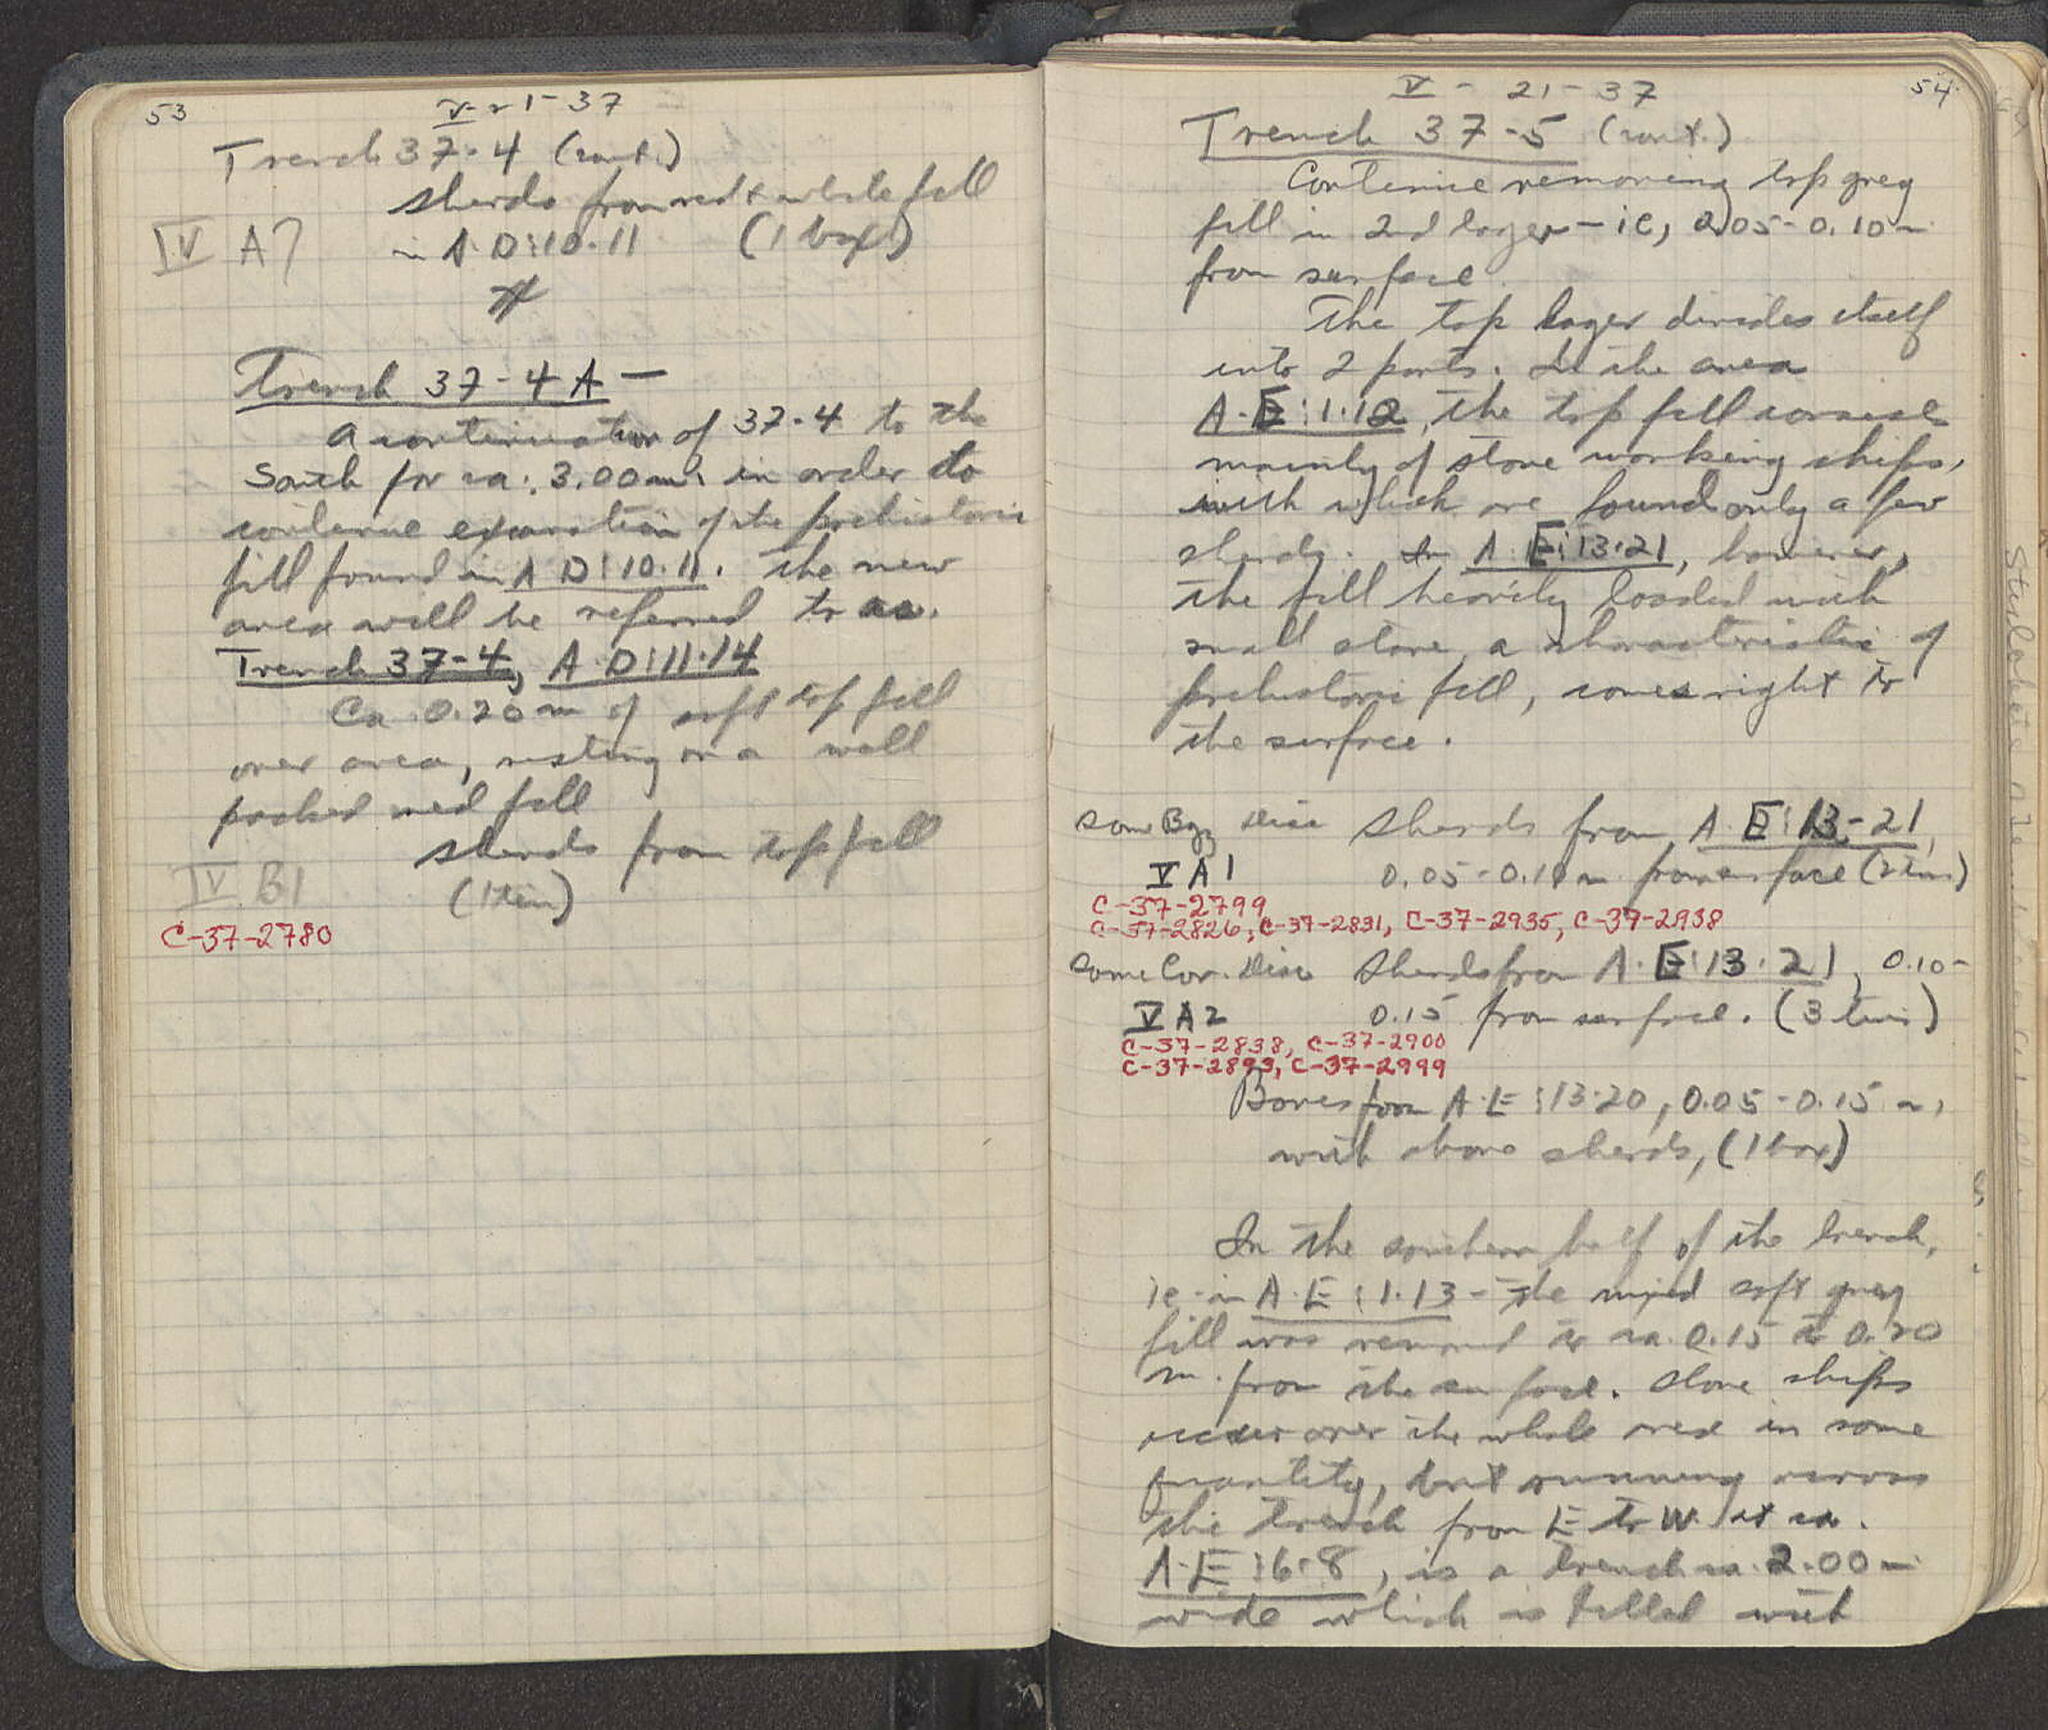 53
V-21-37
Trench 37-4 (cont.)
sherds from red & white fill
IV A7 in A-D:10-11 (1 box)
Trench 37-4 A —
A continuation of 37-4 to the
South for ca. 3.00 m. in order to
continue excavation of the prehistoric
fill found in A-D:10-11. The new
area will be referred to as.
Trench 37-4, A-D:11-14
Ca. 0.20 m of soft top fill
over area, resting on a well
packed med fill
sherds from top fill
IV B1 (1 tin)
C-37-2780
54
V - 21-37
Trench 37-5 (cont.)
Continue removing top grey
fill in 2nd layer — ie, 0.05-0.10 m
from surface.
The top layer divides itself
into 2 parts. In the area
A-E:1-12, the top fill consists
mainly of stone working chips,
with which are found only a few
sherds. In A-E:13-21, however,
the fill heavily loaded with
small stone, a characteristic of
prehistoric fill, comes right to
the surface.
some Byz Disc Sherds from A-E:13-21,
V A1 0.05-0.10 m from surface (2 tins)
C-37-2799
C-37-2826, C-37-2831, C-37-2935, C-37-2938
some Cov. Disc Sherds from A-E:13-21, 0.10-
V A2 0.15 from surface. (3 tins)
C-37-2838, C-37-2900
C-37-2893, C-37-2999
Bones from A-E:13-20, 0.05-0.15 m,
with above sherds, (1 box)
In the southern half of the trench,
ie-in A-E:1-13 - the mixed soft grey
fill was removed to ca. 0.15 to 0.20
m. from the surface. Stone chips
occur over the whole area in some
quantity, but running across
the trench from E to W at ca.
A-E:6-8, is a trench ca. 2.00 m
wide which is filled with